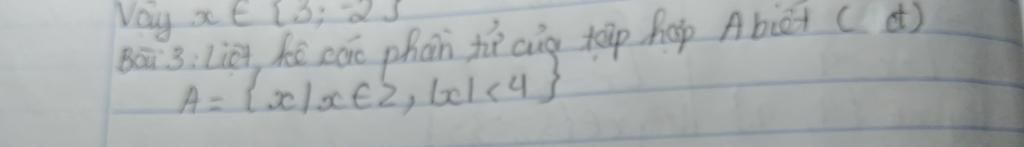 Vậy x ∈ {3; -2}
Bài 3: Liệt kê các phần tử của tập hợp A biết ( đ)
A = {x/x ∈ Z, |x| < 4}